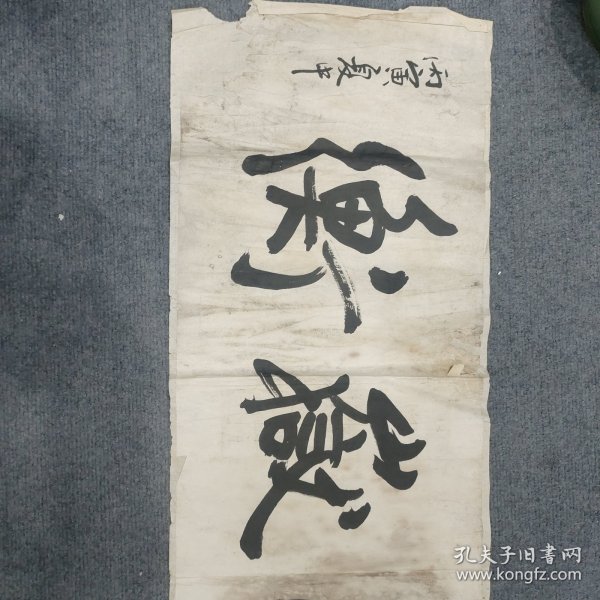 丙寅夏中
衡嶽
孔夫子旧書网
www.kongfz.com